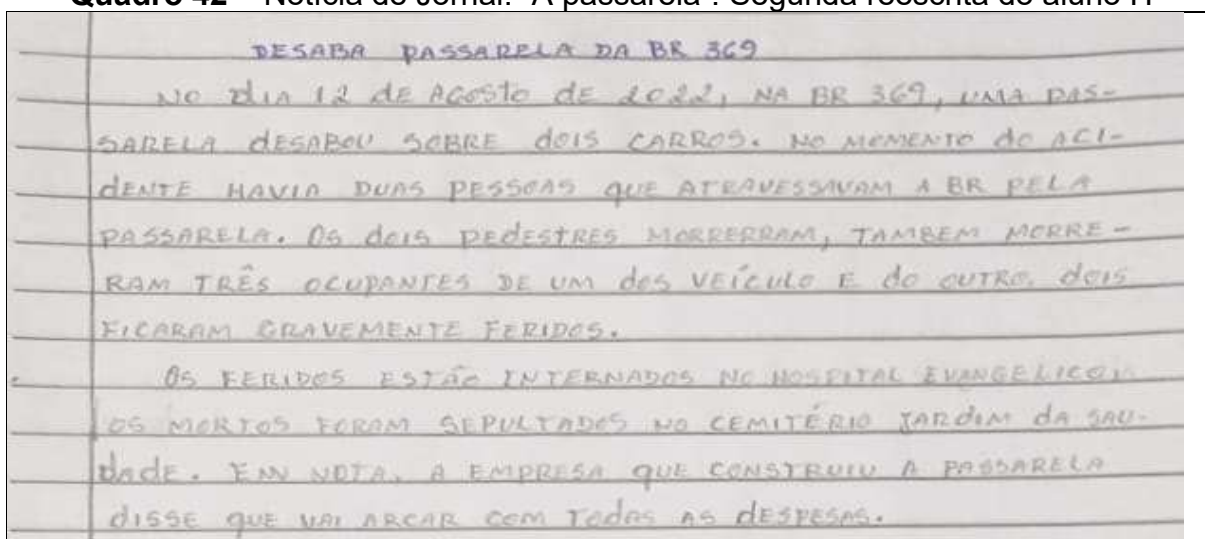 Quadro 42 – Notícia de Jornal: "A passarela". Segunda reescrita do aluno H
DESABA PASSARELA DA BR 369
NO DIA 12 dE AGOSTO dE 2022, NA BR 369, UMA PAS-
SARELA dESABOU SOBRE dOIS CARROS. NO MOMENTO do ACI-
dENTE HAVIA DUAS PESSOAS qUE ATRAVESSAVAM A BR PELA
PASSARELA. OS dois PEdESTRES MORRERRAM, TAMBEM MORRE-
RAM TRÊS OCUPANTES DE UM dos VEÍCULO E do OUTRO, dois
FICARAM GRAVEMENTE FERIDOS.
OS FERIDOS ESTÃO INTERNADOS NO HOSPITAL EVANGELICO,
OS MORTOS FORAM SEPULTADOS NO CEMITÉRIO JARdIM dA SAU-
dAdE. EM NOTA, A EMPRESA qUE CONSTRUIU A PASSARELA
dISSE qUE VAI ARCAR COM TodAS AS dESPESAS.